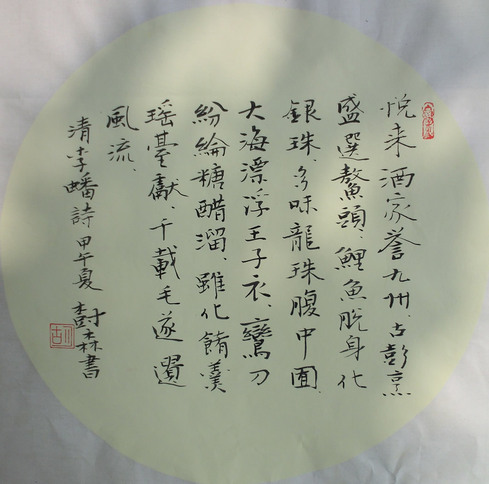 悦来酒家誉九州、古彭烹
盛選鰲頭、鯉魚脱身化
銀珠、多味龍珠腹中圓、
大海漂浮王子衣、鸞刀
紛綸糖醋溜、雖化餚羹
瑶臺獻、千載毛遂遺
風流、
清李蟠詩甲午夏 森書